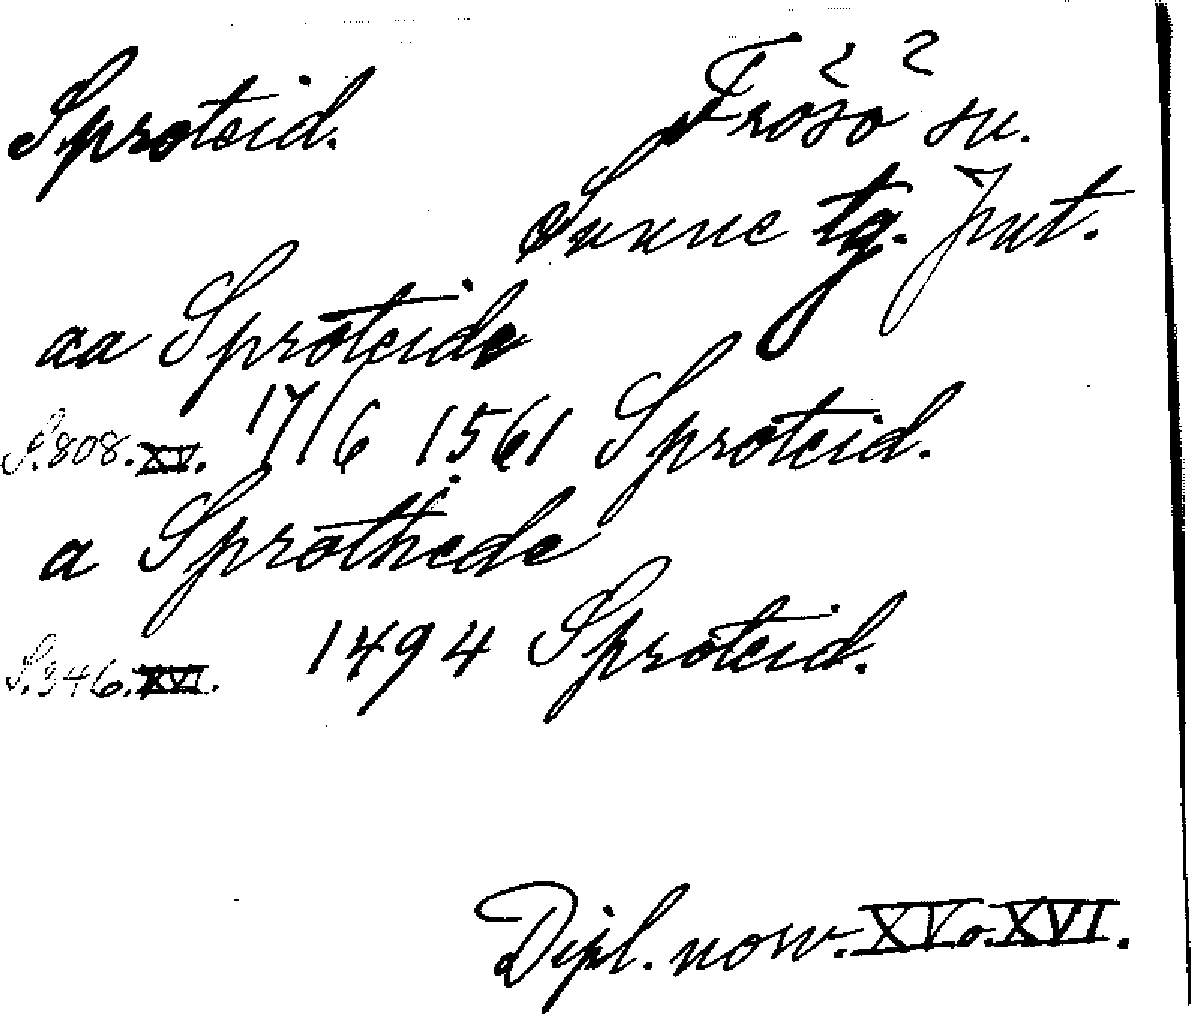 Sproteid. Frösö sn.
Sunne tg. Jmt.
aa Sproteide
S.808.XV. 17/6 1561 Sproteid.
a Sprothede
S.346.XVI. 1494 Sproteid.
Dipl. norv. XV o. XVI.